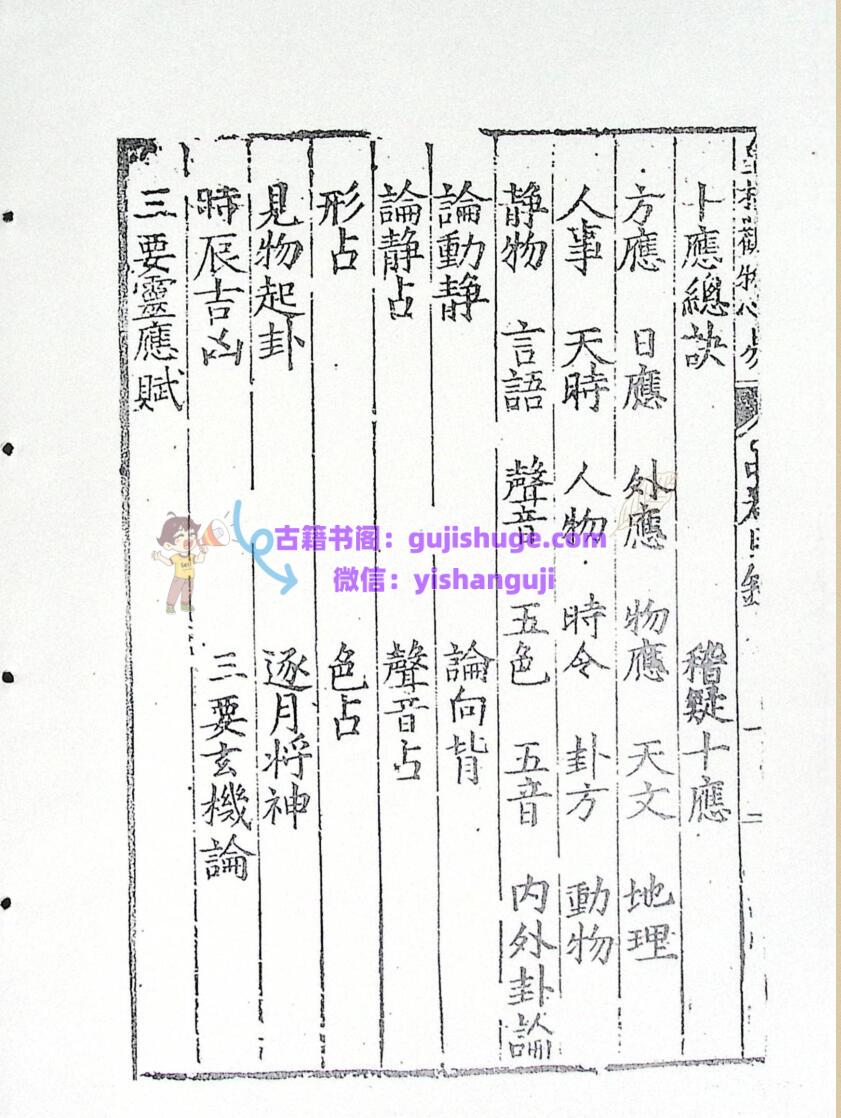 卜應總訣　稽疑十應
方應　日應　外應　物應　天文　地理
人事　天時　人物　時令　卦方　動物
静物　言語　聲音　五色　五音　内外卦論
論動静　論向背
論静占　聲音占
形占　色占
見物起卦　逐月將神
時辰吉凶　三要玄機論
三要靈應賦
古籍书阁：gujishuge.com
微信：yishanguji